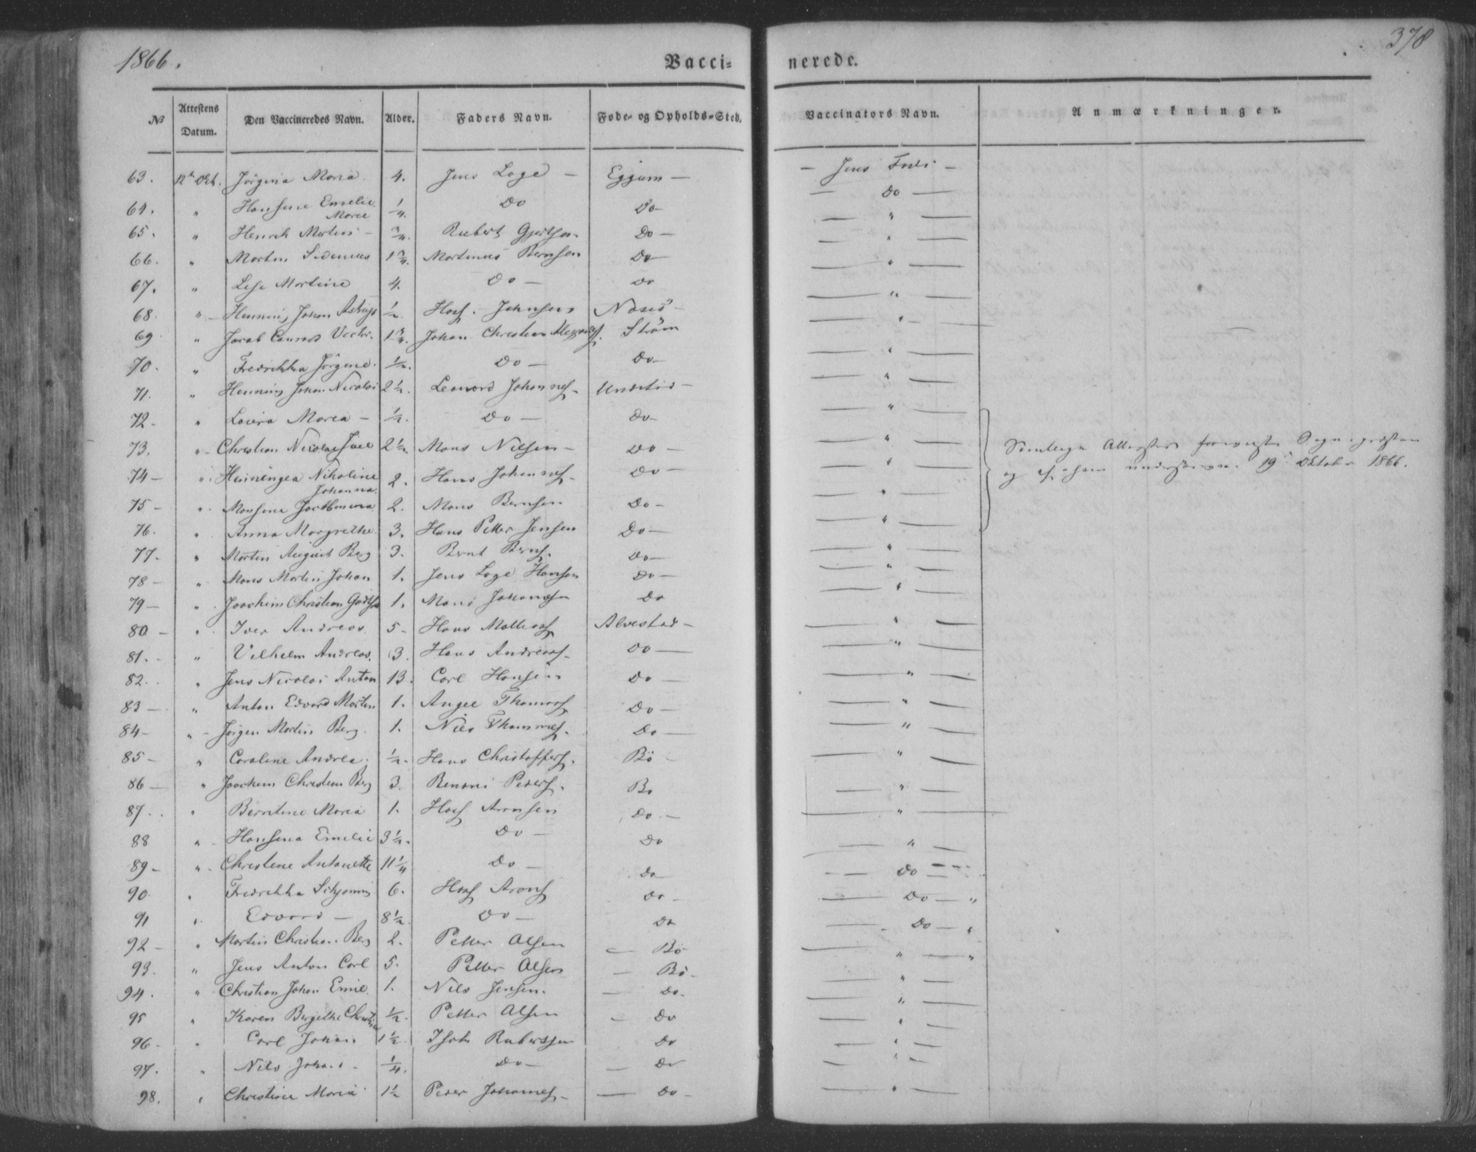 1866. Vaccinerede. 378
№ Attestens Datum. Den Vaccineredes Navn. Alder. Faders Navn. Føde- og Opholds-Sted. Vaccinators Navn. Anmærkninger.
63. 12te Oct. Jörgina Maria 4. Jens Loge — Eggum — — Jens —
64. " Hansine Emelie Marie 1/4. Do Do — — Do —
65. " Henrik Martin — 3/4. Rubert Do — — " —
66. " Martin Sidenius 1 3/4. Martinus Bernsen Do — — " —
67. " Lise Martine 4. Do — Do — " —
68. " Henning Johan 1/2. Johnsens — " —
69 " Jacob Conrad 1 3/4. Johan Christian Ström — " —
70. " Fredrikka Jörgine. 1/2. Do — Do — — " —
71. " Henning Johan Nicolai 2 1/2. Leonard Johannes. Unstad — — " —
72. " Lovisa Marea — 1/2. Do — Do — — " —
73. " Christian Nicolai Juel 2 1/2. Mons Nilsen — Do — — " —
74 — " Henningea Nikoline Johanna 2. Hans Johannes. Do — — " —
Attester 19 Oktober 1866.
75 — " Monsine 2. Mons Bernsen Do — — " —
76. " Anna Margrethe 3. Hans Petter Jensen Do — — " —
77. " Martin August Berg 3. Bernt Berns. Do — — " —
78 — " Mons Martin Johan 1. Jens Loge Hansen Do — — " —
79 — " Joachim Christian 1. Mons Do — " —
80 — " Iver Andreas 5 — Hans Alvestad — — " —
81. " Vilhelm Andreas. 3. Hans Andreas. Do — — " —
82. " Jens Nicolai Anton 13. Carl Hansen Do — — " —
83 — " Anton Edvard Morten 1. Angel Thomas. Do — — " —
84 — " Jörgen Martin Berg. 1. Nils Thommes. Do — — " —
85 — " Caroline Andrea. 1/2. Hans Christoffers. Bö — — " —
86 — " Joachim Christian Berg 3. Benoni Peders. Bö — " —
87. " Berntine Maria 1. Aronsen Do. — — " —
88 " Hansena Emelie 3 1/2. Do — Do — " —
89 — " Christine Antonette 11 1/4 Do — Do — Do —
90 . Fredrikka 6. Arons Do — — Do — "
91 " Edvard — 8 1/2. Do — Do — Do — "
92 — " Martin Christian Berg 2. Petter Olsen — Bö — " — "
93. " Jens Anton Carl 5. Petter Olsen — Bö. — " —
94. " Christian Johan Emil 1. Nils Jensen. — Do. — " —
95 " Karen Birgithe 1/2. Petter Olsen — Do — " —
96. " Carl Johan 1 1/2. Isak Rubertsen Do — " —
97. " Nils Johan . 1/4. Do — — Do — " —
98. " Christine Maria 1 1/2 Peder Johannes. — Do — — " —